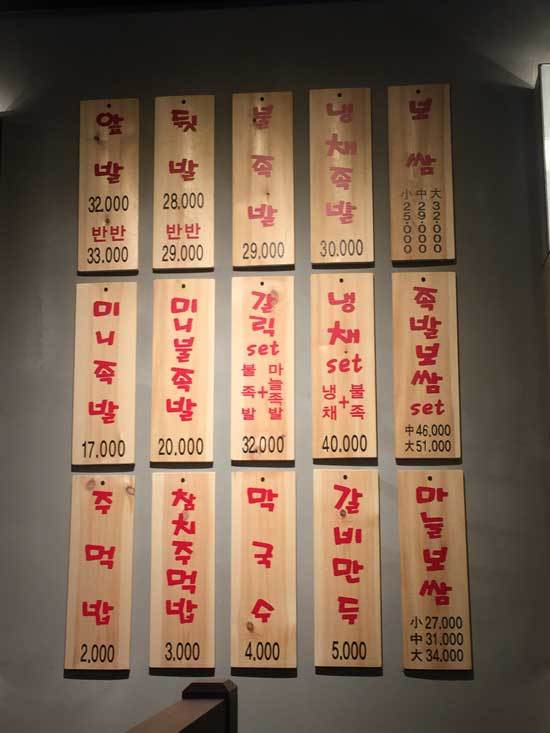 앞발
32,000
반반
33,000
뒷발
28,000
반반
29,000
불족발
29,000
냉채족발
30,000
보쌈
小 25,000
中 29,000
大 32,000
미니족발
17,000
미니불족발
20,000
갈릭
set
불족발+마늘족발
32,000
냉채
set
냉채+불족
40,000
족발보쌈
set
中 46,000
大 51,000
주먹밥
2,000
참치주먹밥
3,000
막국수
4,000
갈비만두
5,000
마늘보쌈
小 27,000
中 31,000
大 34,000